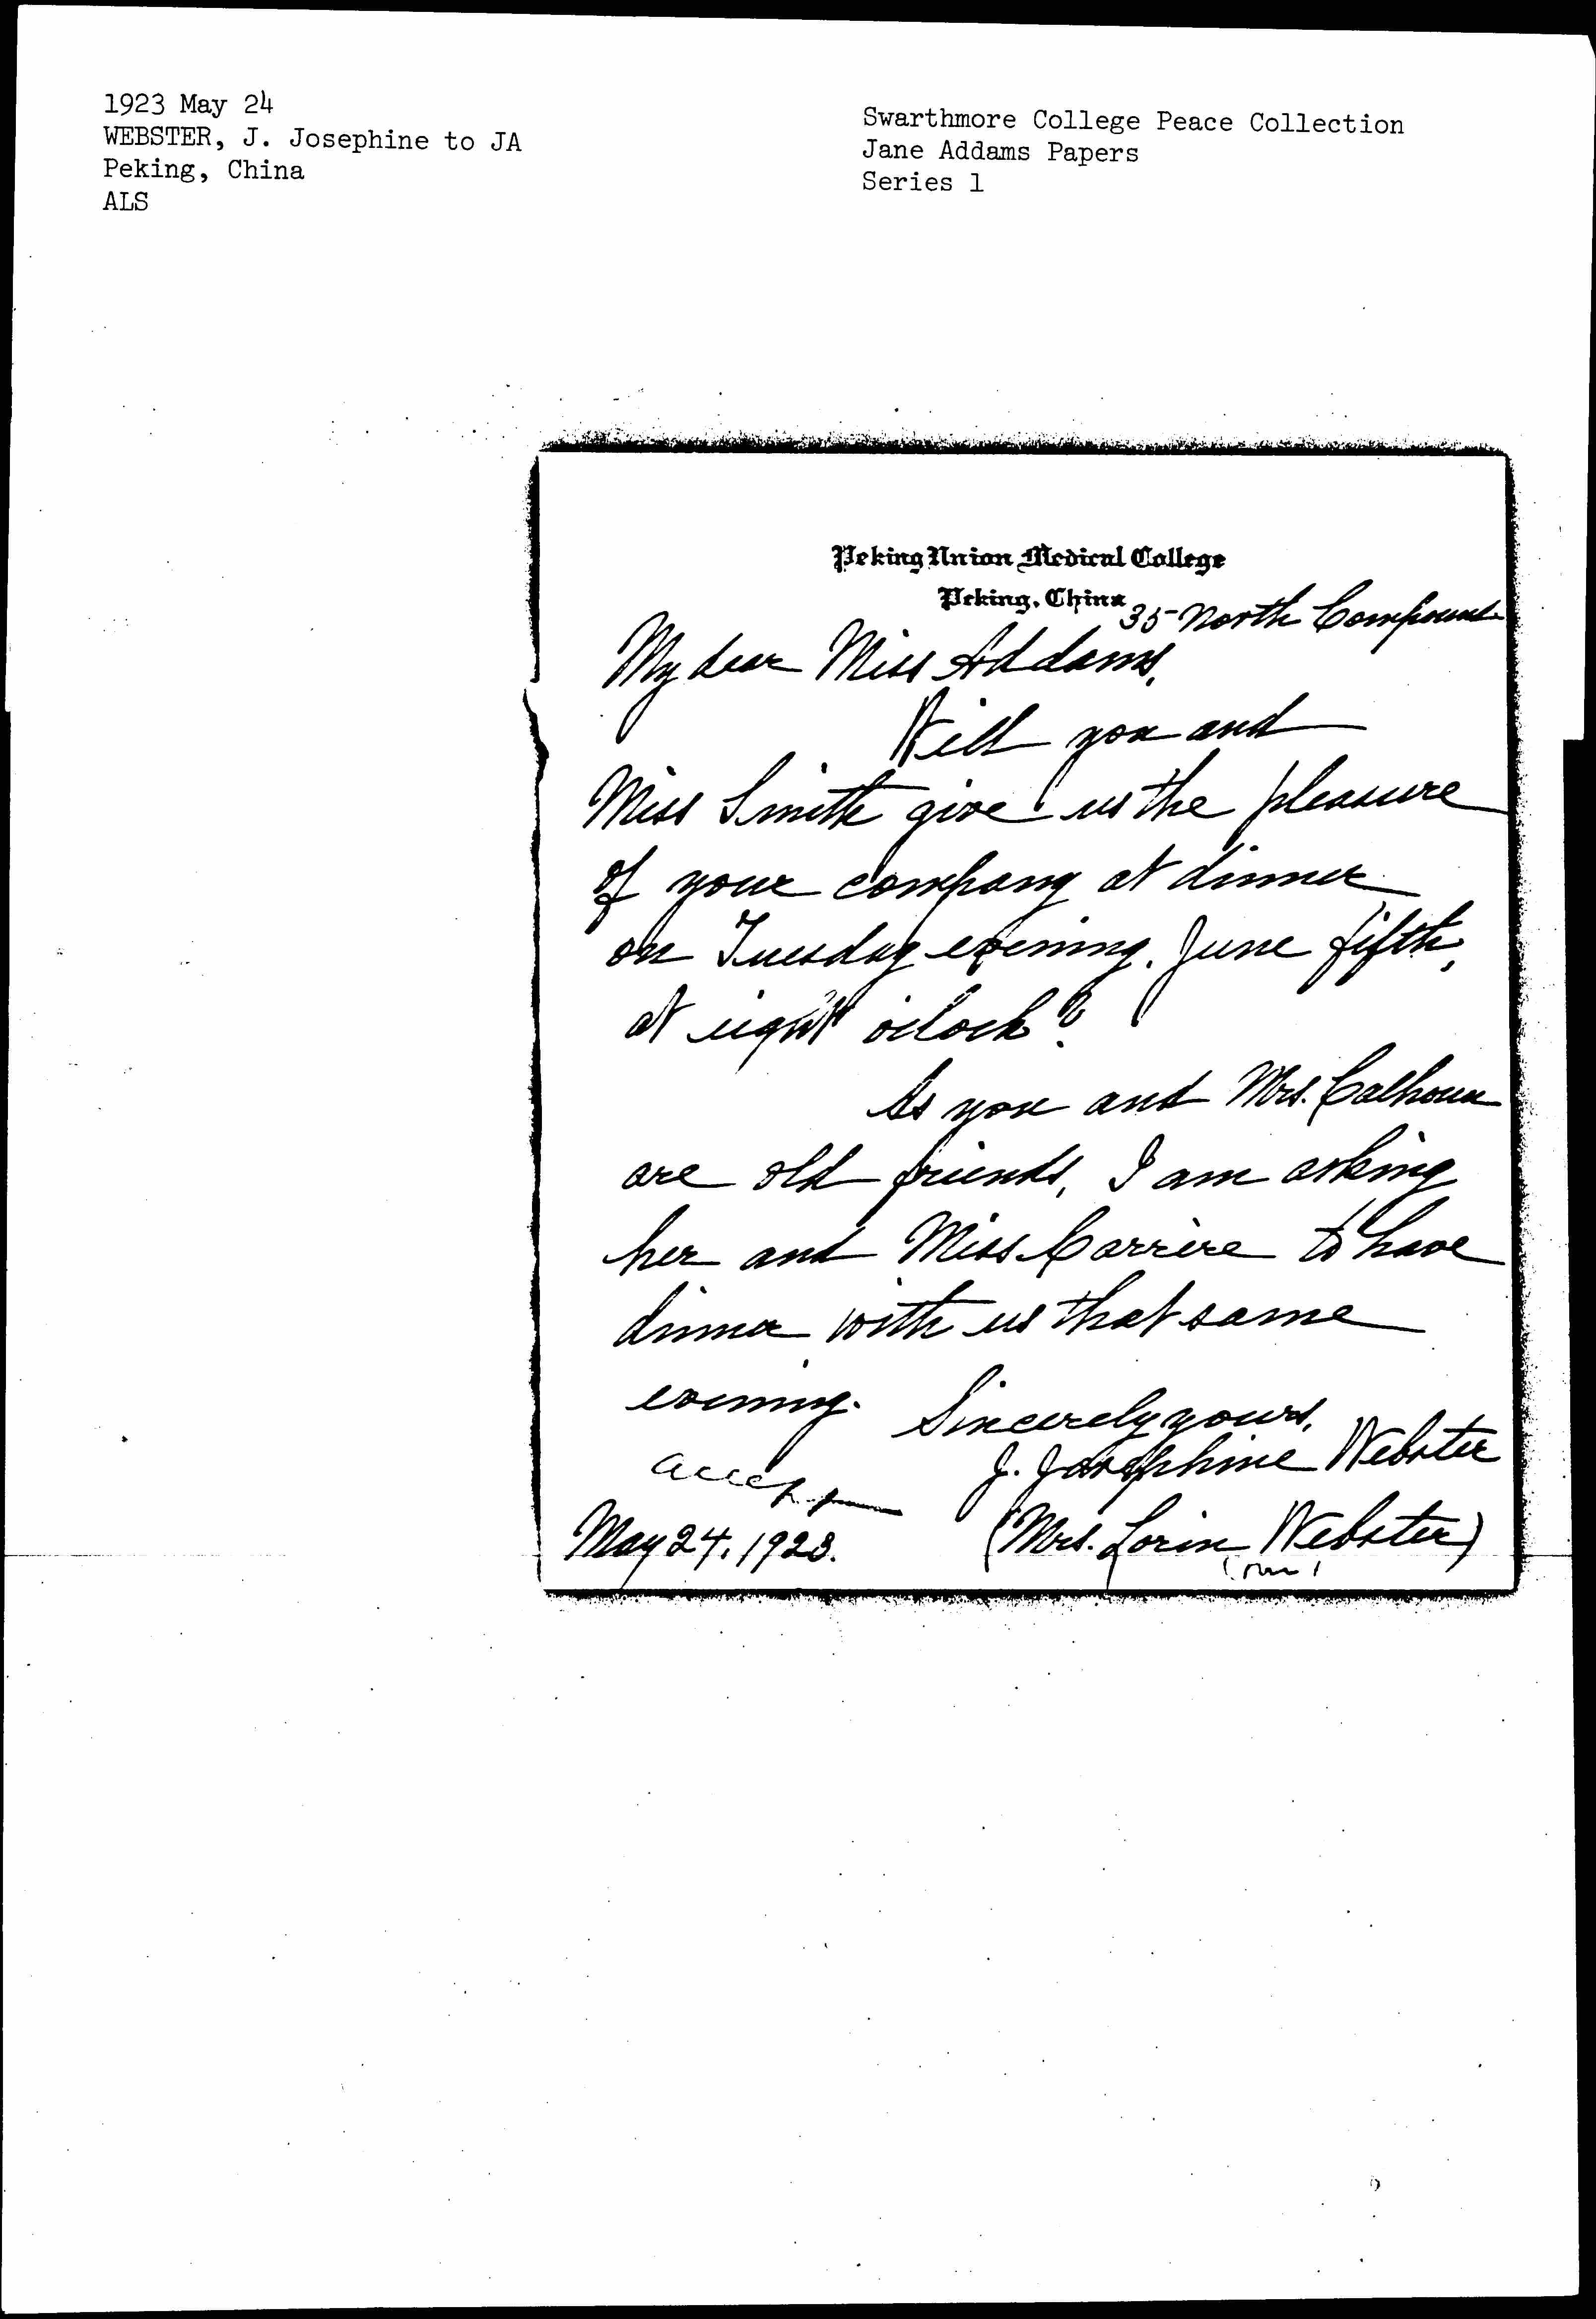 1923 May 24
WEBSTER, J. Josephine to JA
Peking, China
ALS
Swarthmore College Peace Collection
Jane Addams Papers
Series 1
Peking Union Medical College
Peking, China
35 North Compound
My dear Miss Addams,
Will you and
Miss Smith give us the pleasure
of your company at dinner
on Tuesday evening, June fifth,
at eight o'clock?
As you and Mrs. Calhoun
are old friends, I am asking
her and Miss Carrère to have
dinner with us that same
evening.
Sincerely yours,
J. Josephine Webster
(Mrs. Lorin Webster)
accept
May 24, 1923.